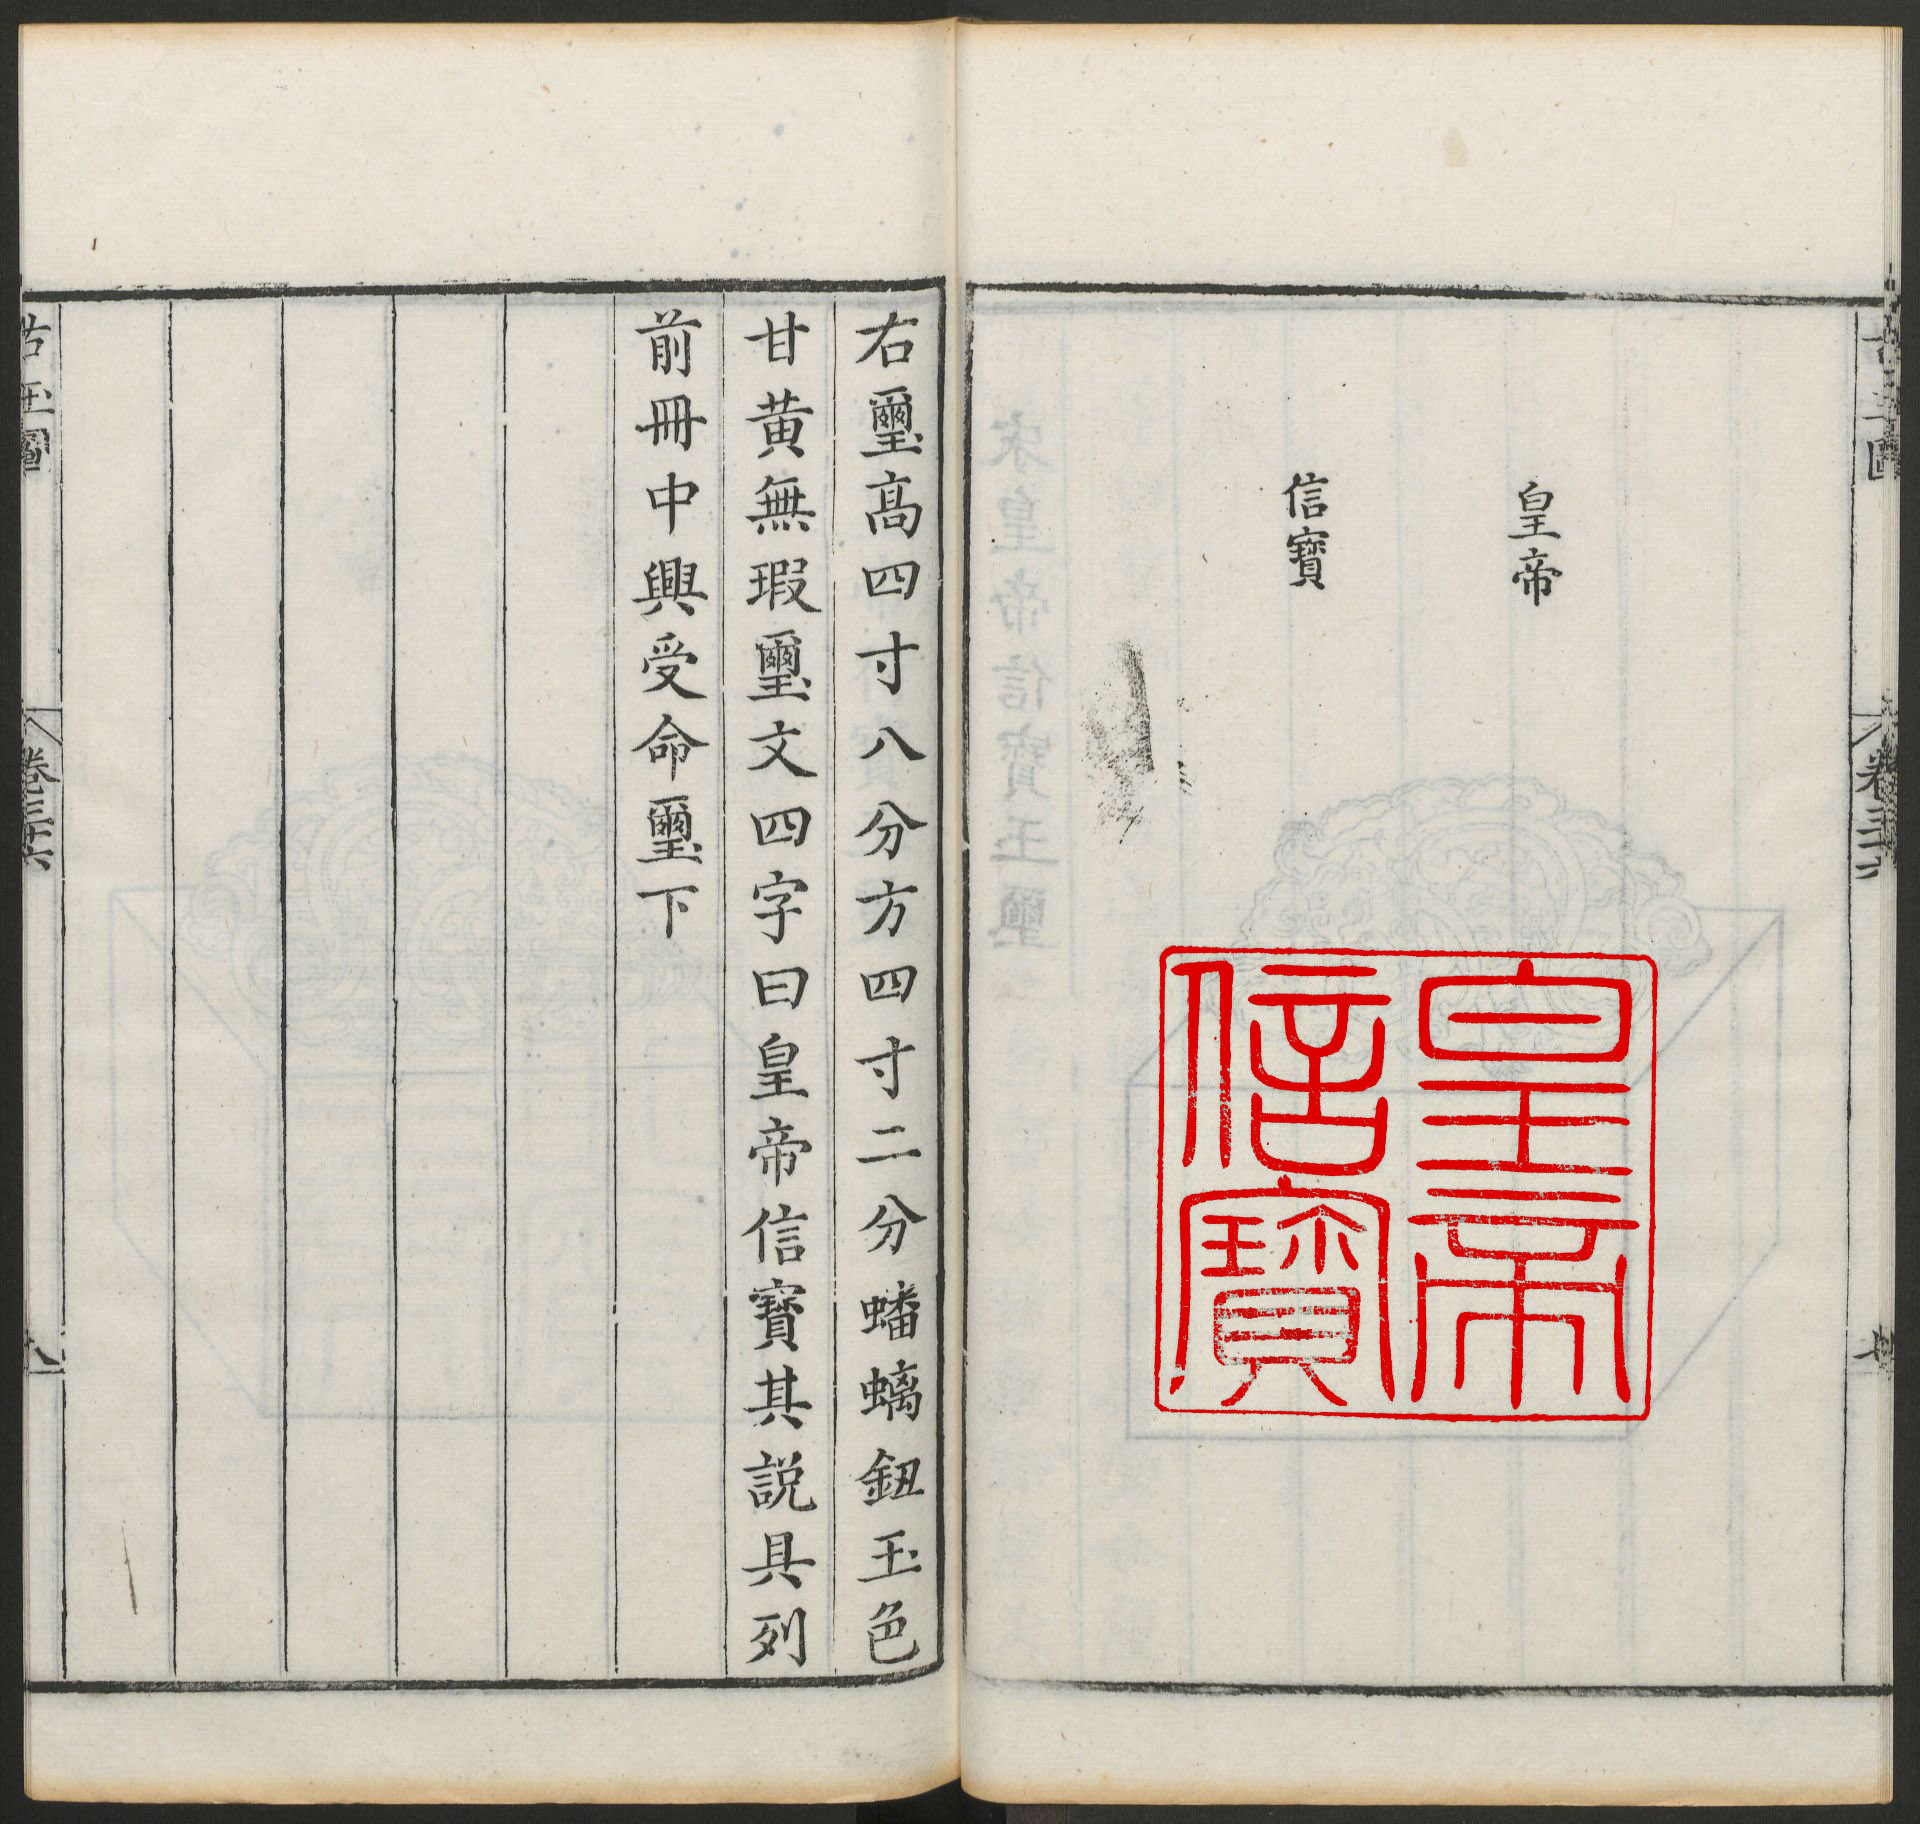 古玉圖
卷三十六
皇帝
信寶
皇帝
信寶
右璽高四寸八分方四寸二分蟠螭鈕玉色
甘黃無瑕璽文四字曰皇帝信寶其説具列
前冊中興受命璽下
古玉圖
卷三十六
八